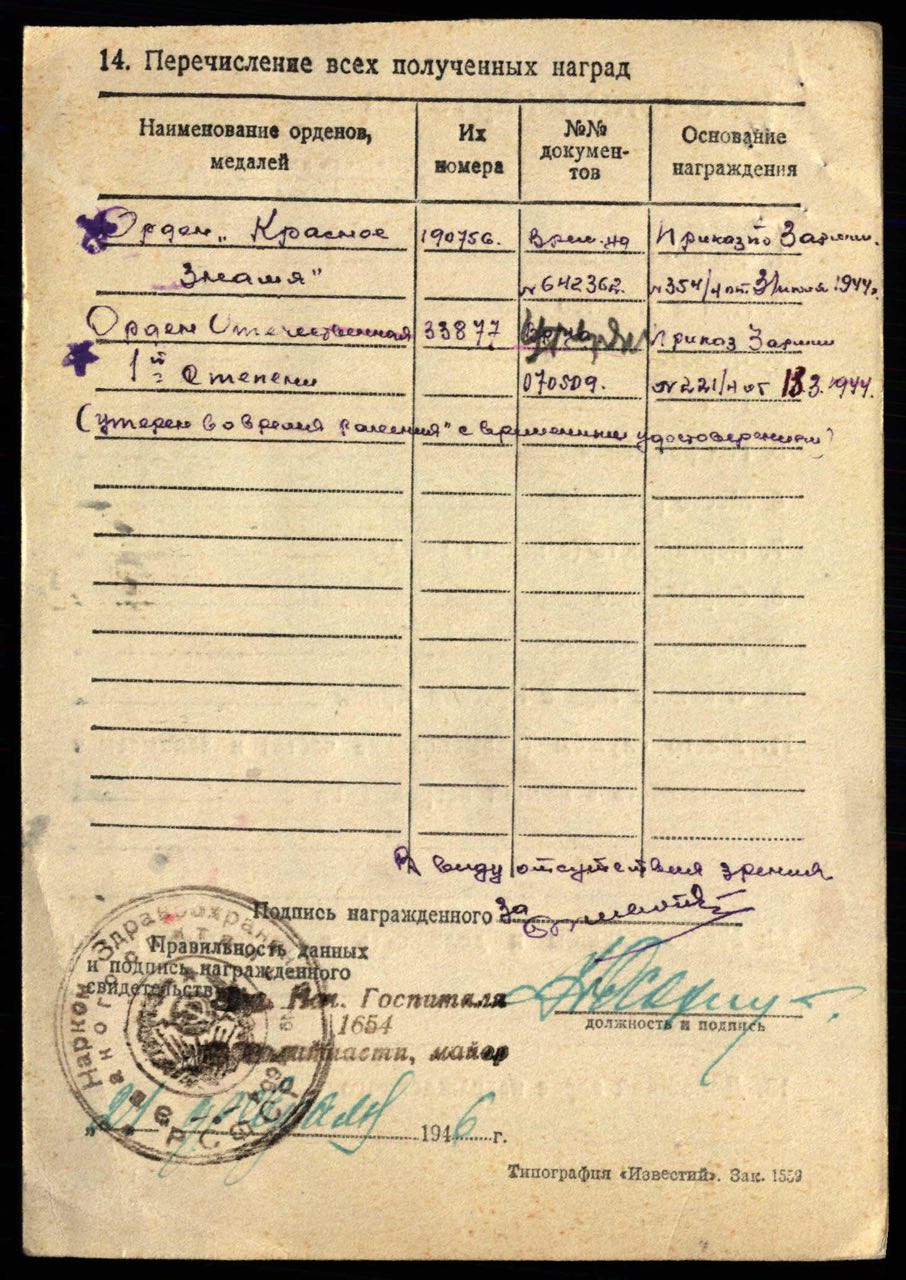 14. Перечисление всех полученных наград
Наименование орденов, медалей
Их номера
№№ документов
Основание награждения
Орден „Красное 190756. Врем. на Приказ по 3 армии.
Знамя" № 642362. № 354/н от 31 июля 1944г.
Орден Отечественная 33877 Приказ 3 армии
1й Степени 070509. № 221/н от 13.3.1944.
(утерен во время ранения с временным удостоверением)
В виду отсутствия зрения
Подпись награжденного За
Правильность данных
и подпись награжденного
свидетельствую Нач. Госпиталя
1654
Политчасти, майор
должность и подпись
„21" февраля 1946 г.
Наркомздравохранения
РСФСР
Типография «Известий». Зак. 1559